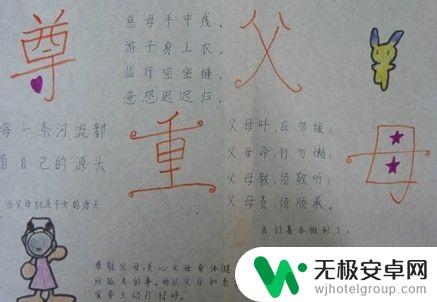 尊
慈母手中线,
游子身上衣,
临行密密缝,
意恐迟迟归.
父
每一条河流都
有自己的源头
而父母就是子女的源头
重
父母呼,应勿缓;
父母命,行勿懒;
父母教,须敬听;
父母责,须顺承。
我们基本做到了.
母
尊敬父母,关心父母身体健
无极安卓网
wjhotelgroup.com